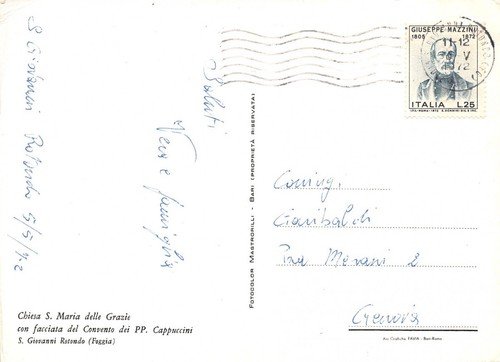 S. Giovanni Rotondo 5/5/72
Saluti
Vera e famiglia
Chiesa S. Maria delle Grazie
con facciata del Convento dei PP. Cappuccini
S. Giovanni Rotondo (Foggia)
FOTOCOLOR MASTRORILLI - BARI (PROPRIETÀ RISERVATA)
GIUSEPPE MAZZINI
1805 1872
11-12
V
72
ITALIA L.25
Coniug.
Garibaldi
2
Cremona
Arti Grafiche FAVIA - Bari-Roma